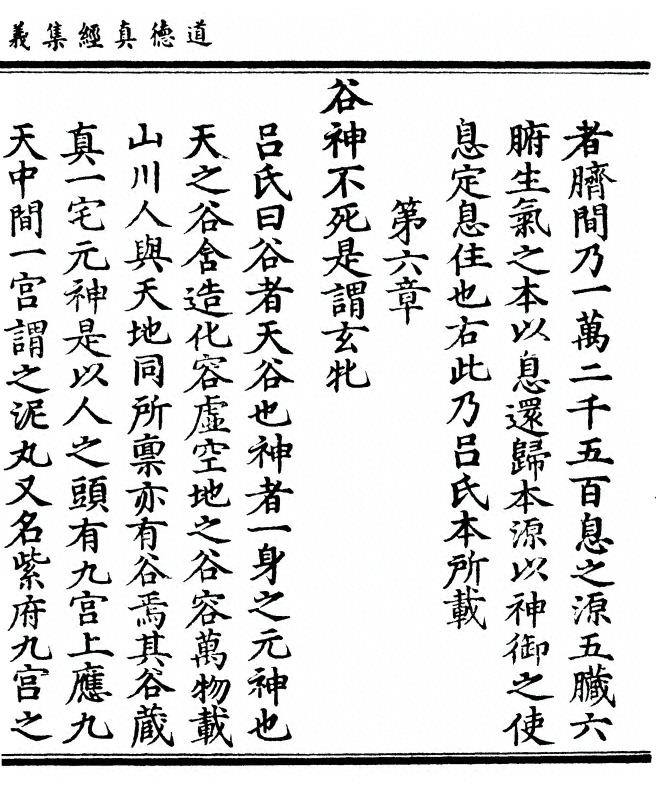 道德真經集義
者臍間乃一萬二千五百息之源五臟六
腑生氣之本以息還歸本源以神御之使
息定息住也右此乃呂氏本所載
第六章
谷神不死是謂玄牝
呂氏曰谷者天谷也神者一身之元神也
天之谷含造化容虛空地之谷容萬物載
山川人與天地同所禀亦有谷焉其谷蔵
真一宅元神是以人之頭有九宮上應九
天中間一宮謂之泥丸又名紫府九宮之